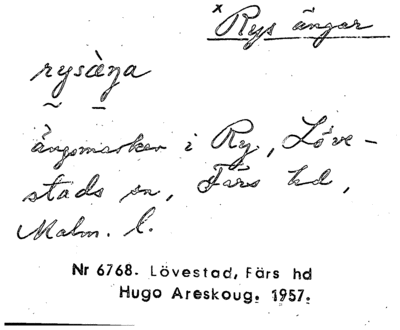 x Rys ängar
rysàŋa
ängsmarker i Ry, Löve-
stads sn, Färs hd,
Malm. l.
Nr 6768. Lövestad, Färs hd
Hugo Areskoug. 1957.